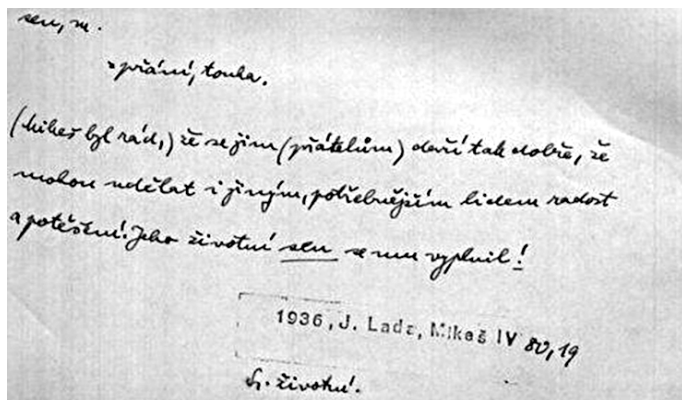 sen, m.
= přání, touha.
(Mikeš byl rád,) že se jim (přátelům) daří tak dobře, že
mohou udělat i jiným, potřebnějším lidem radost
a potěšení. Jeho životní sen se mu vyplnil!
1936, J. Lada, Mikeš IV 80, 19
životní.